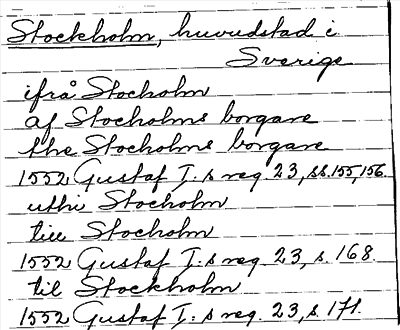 Stockholm, huvudstad i
Sverige
ifrå Stocholm
af Stocholms borgare
the Stocholms borgare
1552 Gustaf I:s reg. 23, ss. 155, 156.
uthi Stocholm
till Stocholm
1552 Gustaf I:s reg. 23, s. 168.
til Stockholm
1552 Gustaf I:s reg. 23, s. 171.